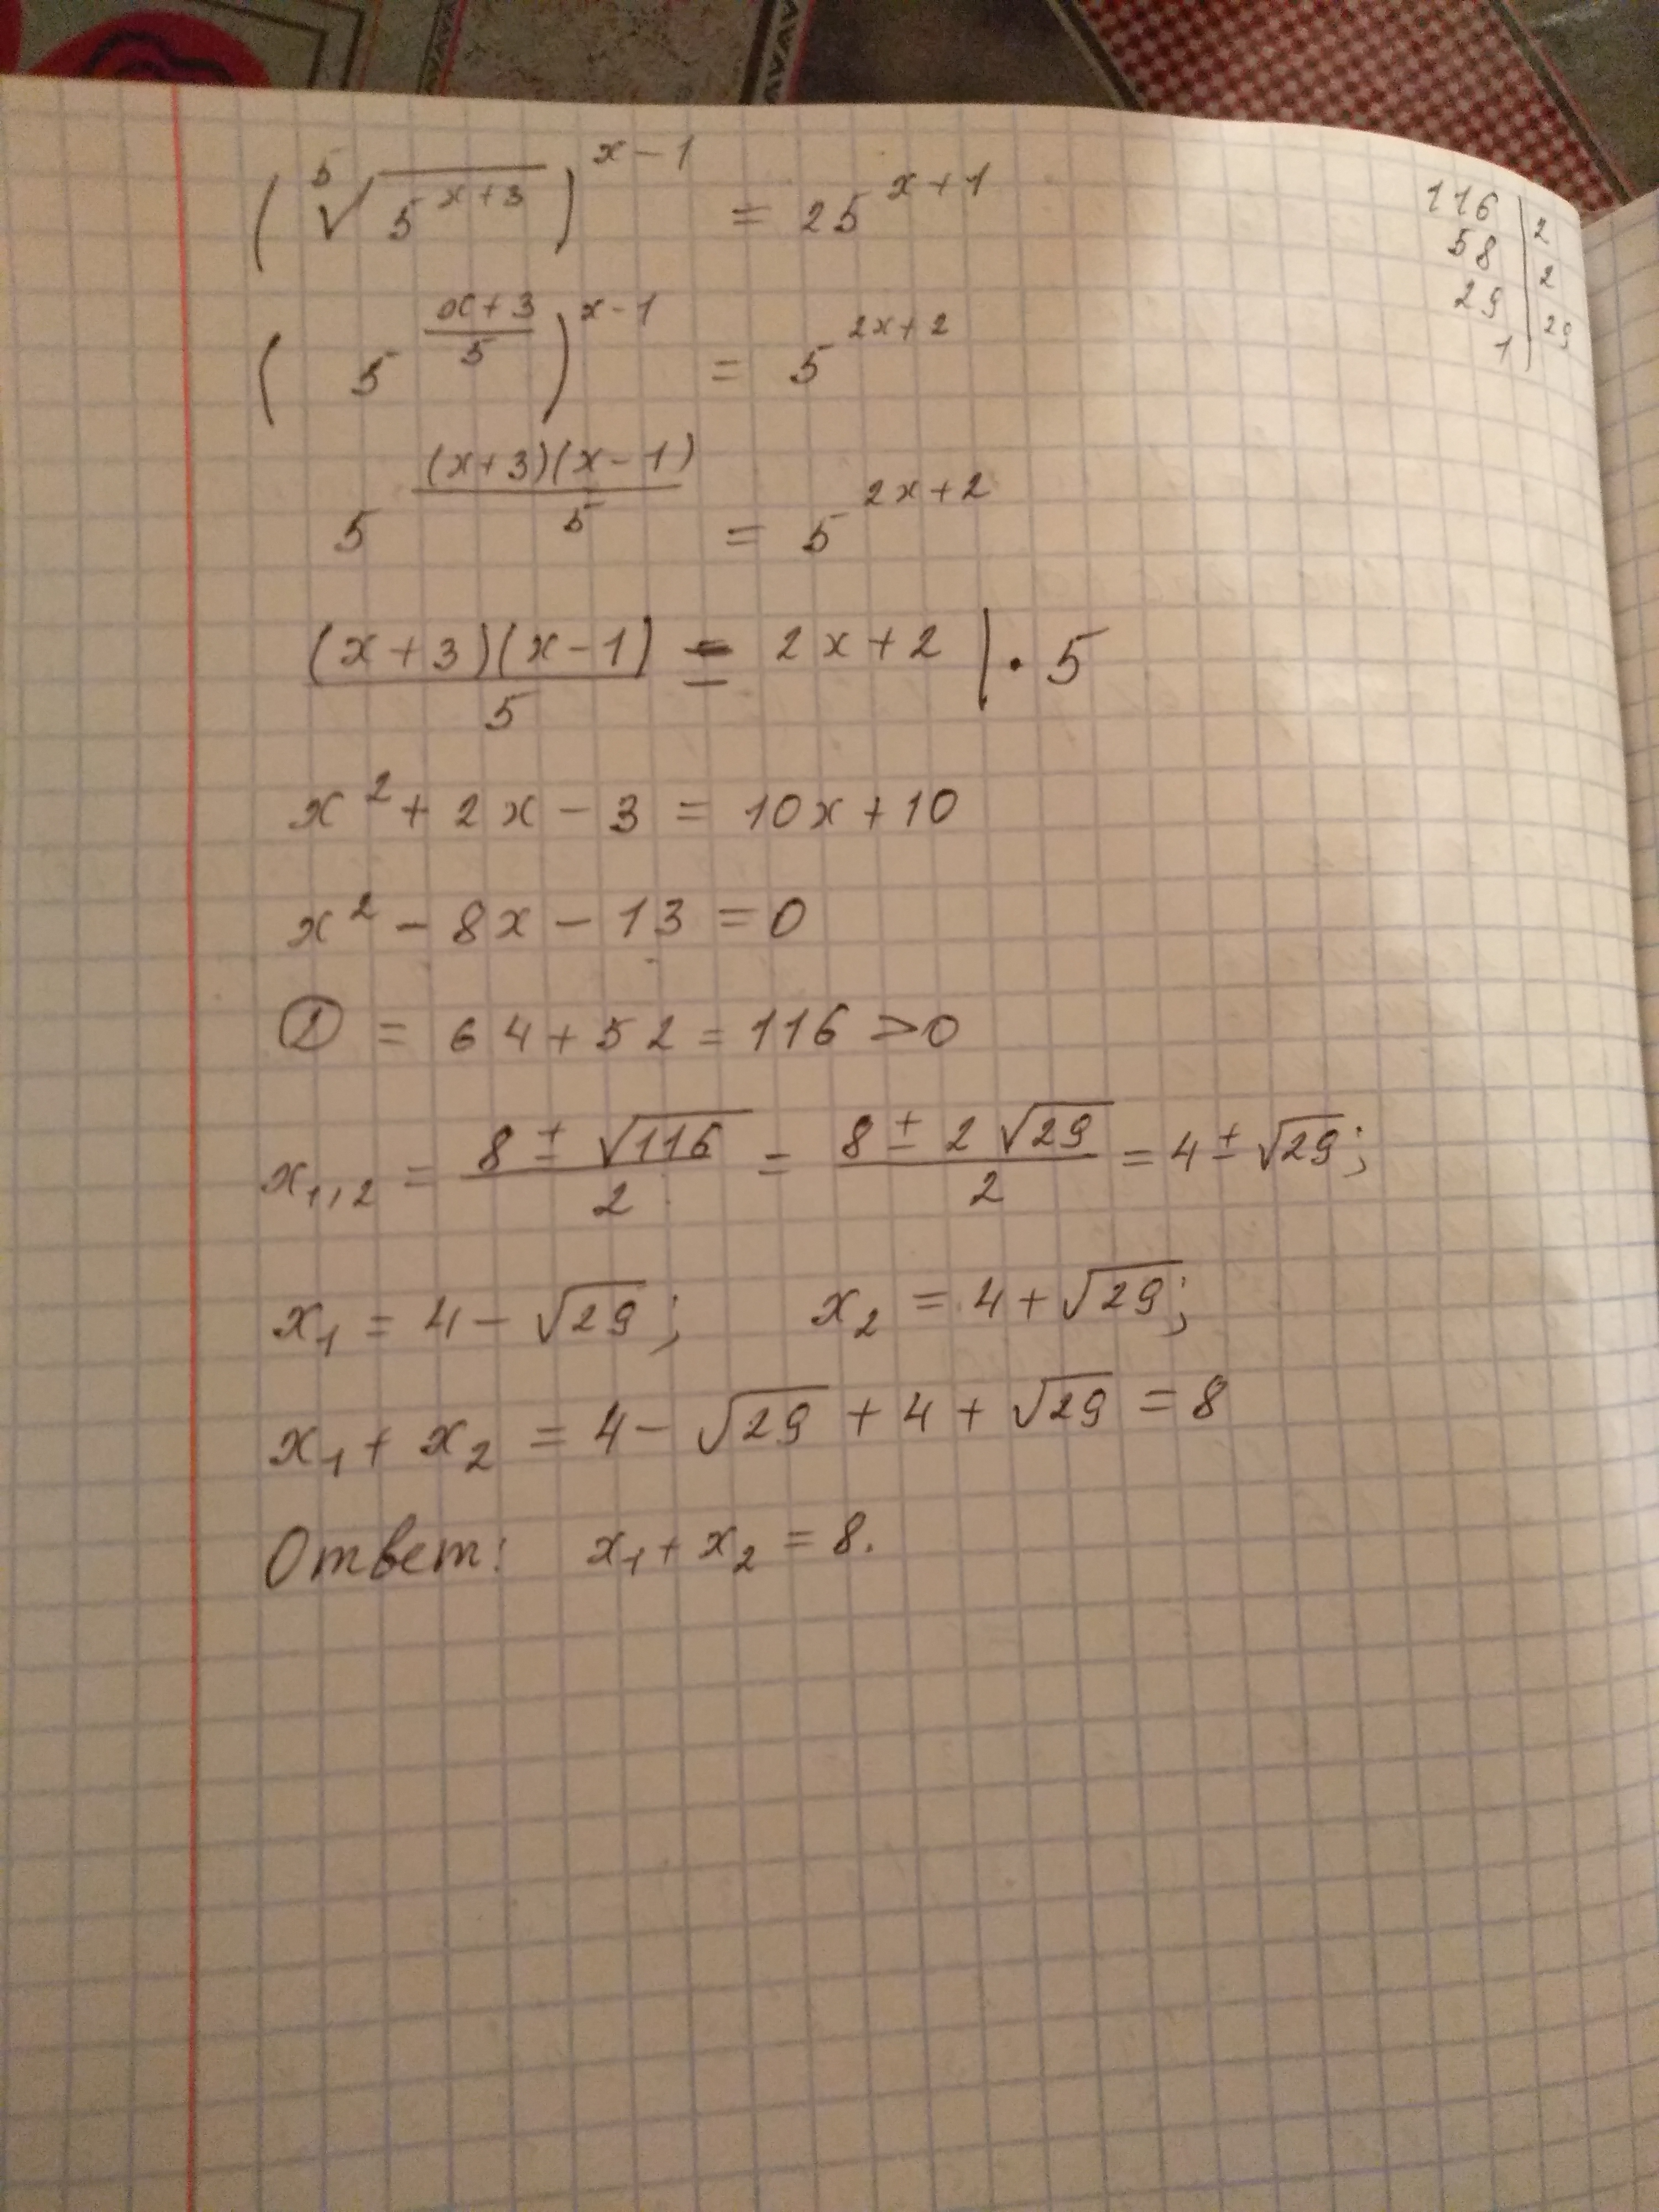 (⁵√(5^(x+3)))^(x-1) = 25^(x+1)
(5^((x+3)/5))^(x-1) = 5^(2x+2)
5^((x+3)(x-1)/5) = 5^(2x+2)
(x+3)(x-1)/5 = 2x+2 | · 5
x² + 2x - 3 = 10x + 10
x² - 8x - 13 = 0
D = 64 + 52 = 116 > 0
x₁,₂ = (8 ± √116)/2 = (8 ± 2√29)/2 = 4 ± √29;
x₁ = 4 - √29; x₂ = 4 + √29;
x₁ + x₂ = 4 - √29 + 4 + √29 = 8
Ответ: x₁ + x₂ = 8.
116 | 2
58 | 2
29 | 29
1 |